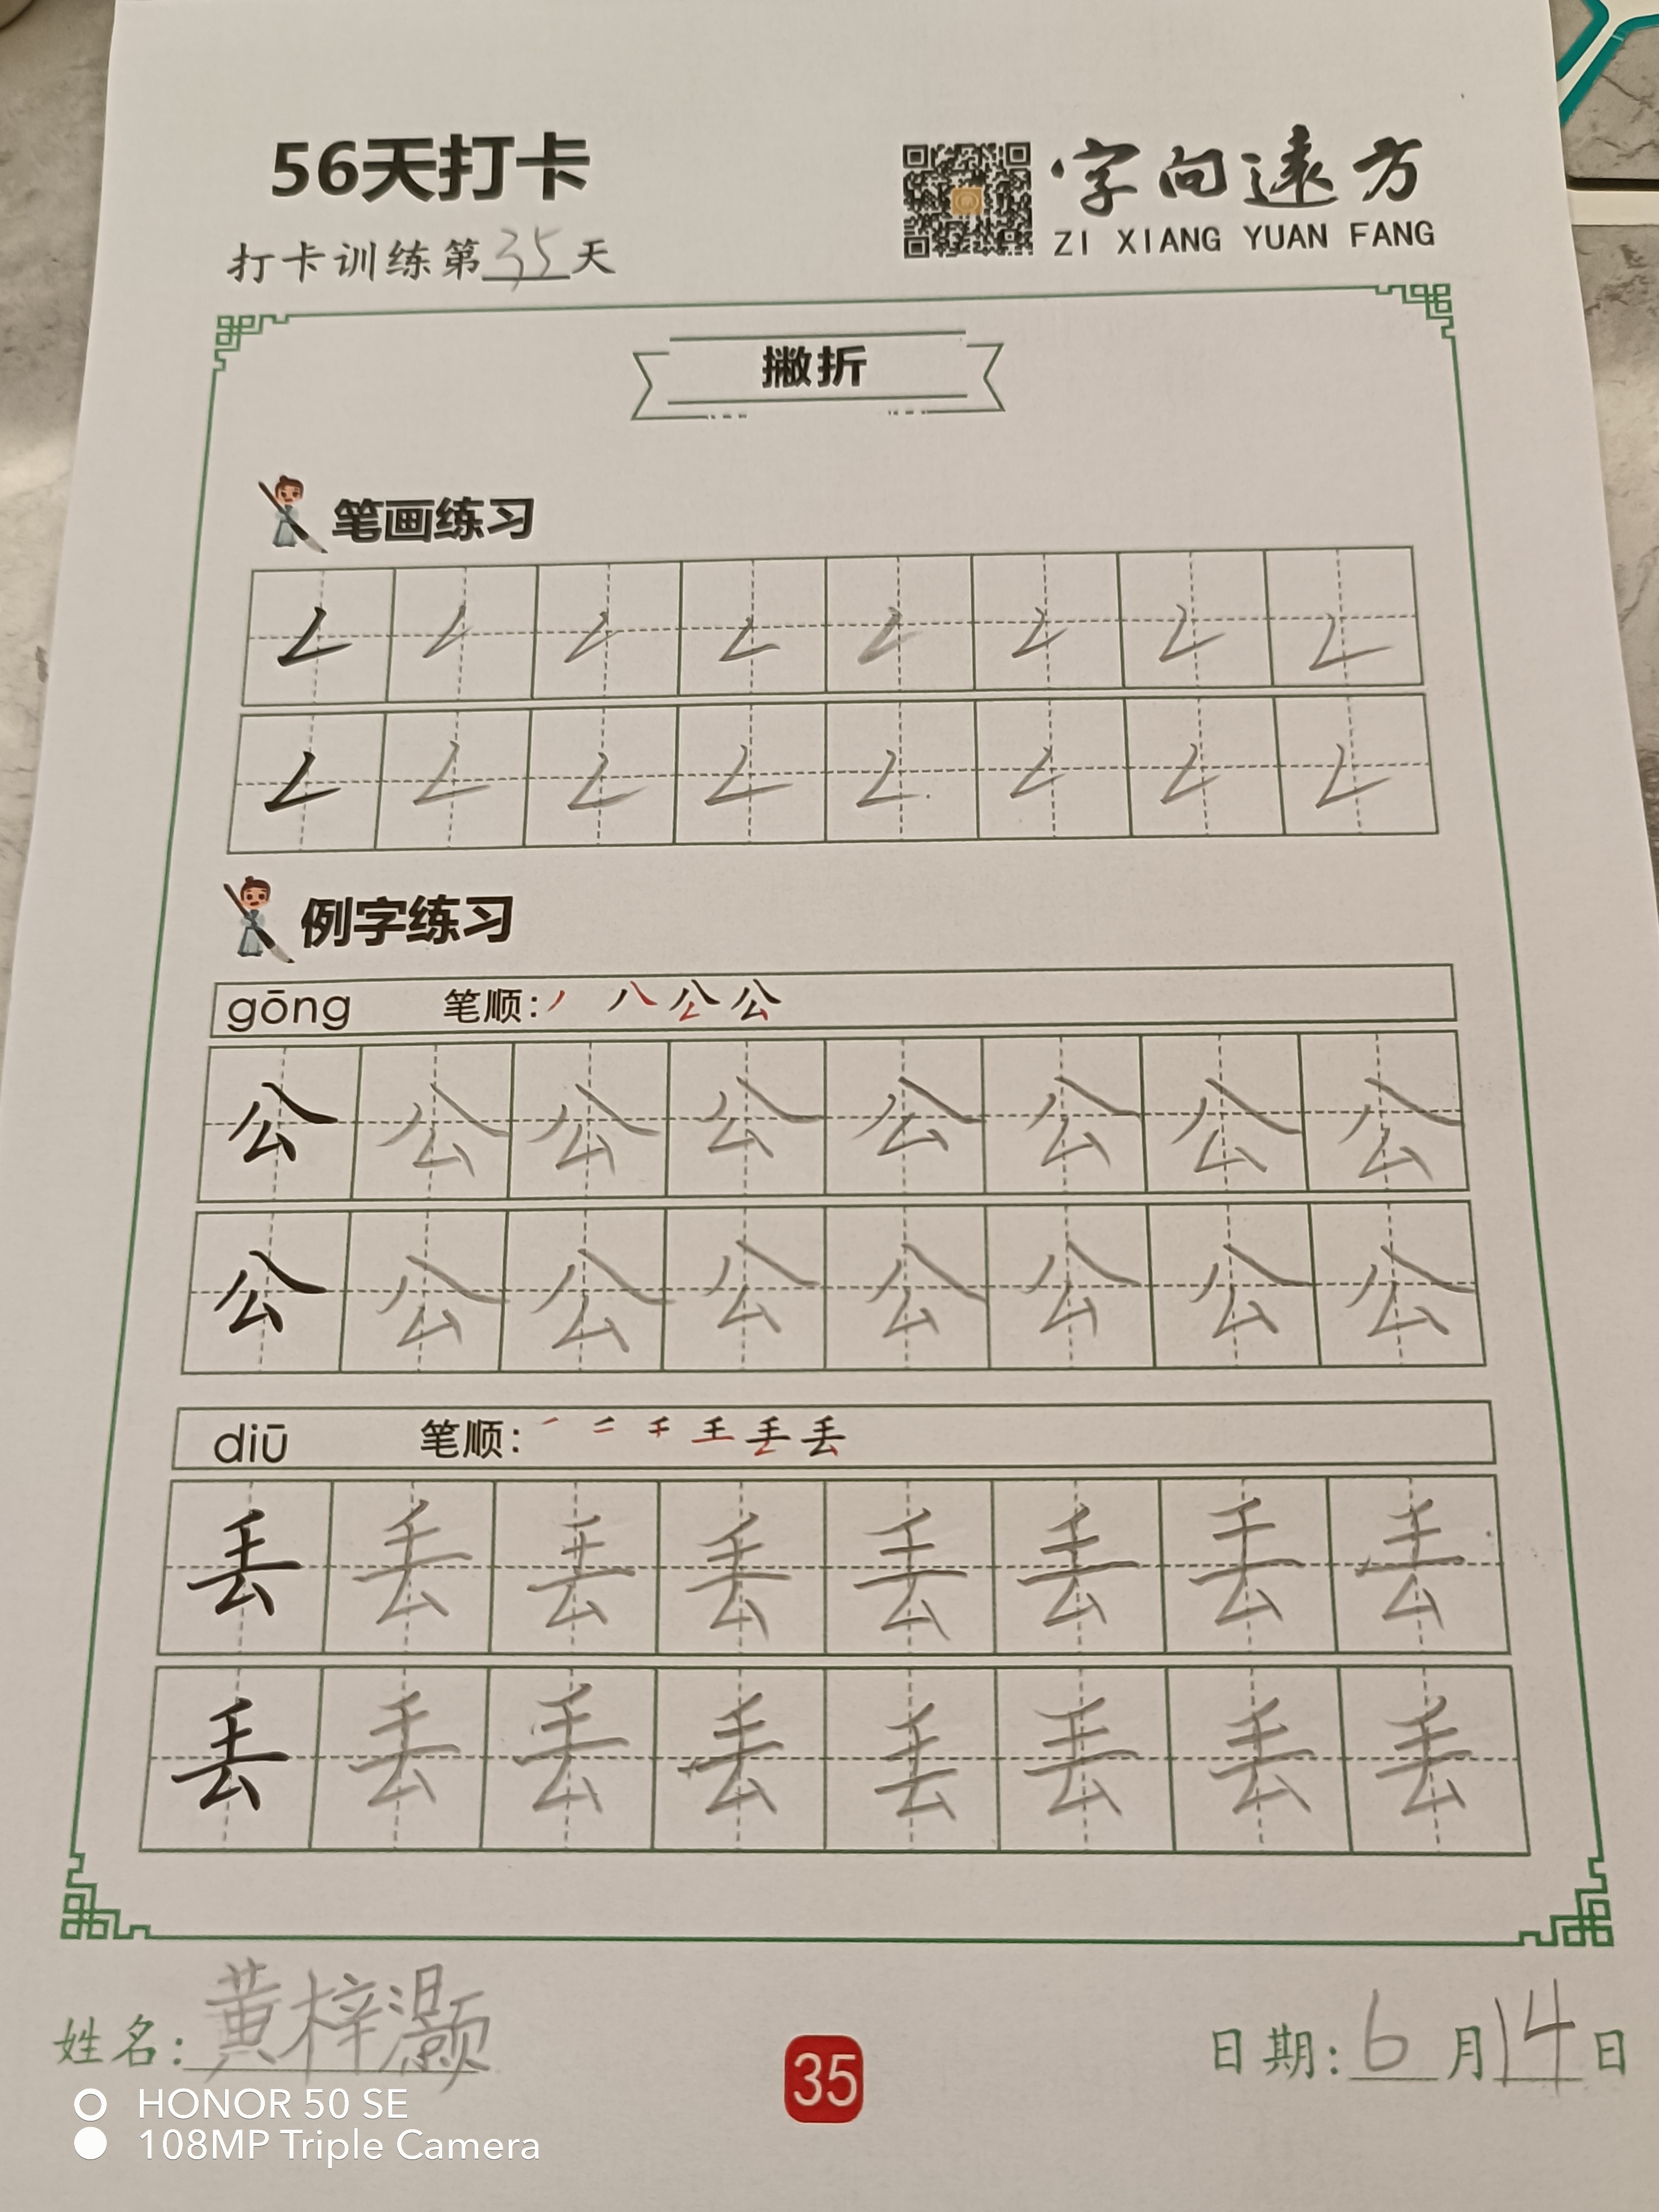 56天打卡
字向遠方
ZI XIANG YUAN FANG
打卡训练第35天
撇折
笔画练习
𠃋 𠃋 𠃋 𠃋 𠃋 𠃋 𠃋 𠃋
𠃋 𠃋 𠃋 𠃋 𠃋 𠃋 𠃋 𠃋
例字练习
gōng 笔顺: 丿 八 公 公
公 公 公 公 公 公 公 公
公 公 公 公 公 公 公 公
diū 笔顺: 丢
丢 丢 丢 丢 丢 丢 丢 丢
丢 丢 丢 丢 丢 丢 丢 丢
姓名: 黄梓灏
35
日期: 6月14日
HONOR 50 SE
108MP Triple Camera